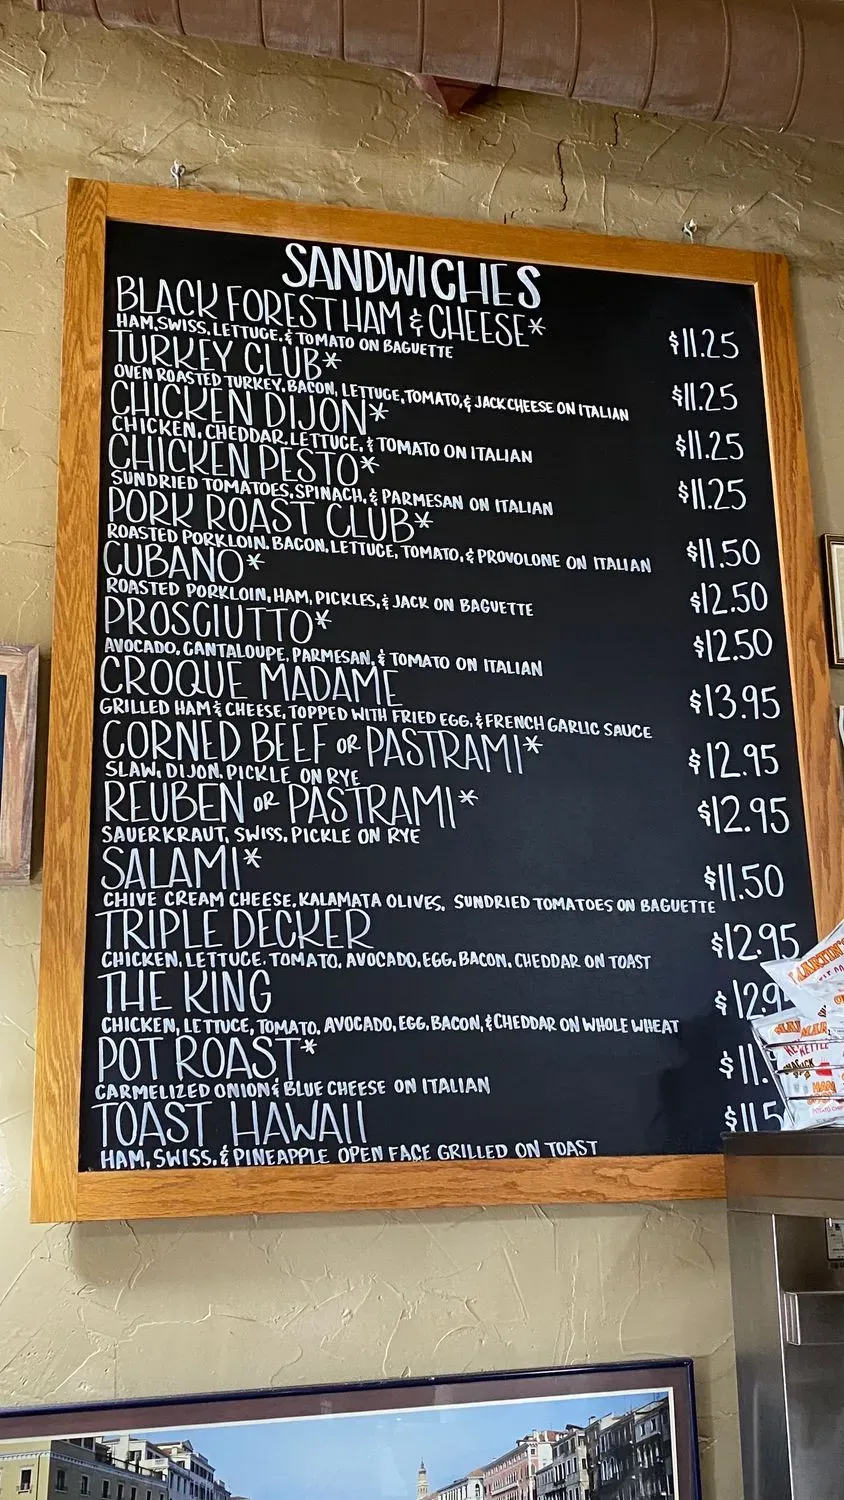 SANDWICHES
BLACK FOREST HAM & CHEESE* $11.25
HAM, SWISS, LETTUCE, & TOMATO ON BAGUETTE
TURKEY CLUB* $11.25
OVEN ROASTED TURKEY, BACON, LETTUCE, TOMATO, & JACK CHEESE ON ITALIAN
CHICKEN DIJON* $11.25
CHICKEN, CHEDDAR, LETTUCE, & TOMATO ON ITALIAN
CHICKEN PESTO* $11.25
SUNDRIED TOMATOES, SPINACH, & PARMESAN ON ITALIAN
PORK ROAST CLUB* $11.50
ROASTED PORKLOIN, BACON, LETTUCE, TOMATO, & PROVOLONE ON ITALIAN
CUBANO* $12.50
ROASTED PORKLOIN, HAM, PICKLES, & JACK ON BAGUETTE
PROSCIUTTO* $12.50
AVOCADO, CANTALOUPE, PARMESAN, & TOMATO ON ITALIAN
CROQUE MADAME $13.95
GRILLED HAM & CHEESE, TOPPED WITH FRIED EGG, & FRENCH GARLIC SAUCE
CORNED BEEF OR PASTRAMI* $12.95
SLAW, DIJON, PICKLE ON RYE
REUBEN OR PASTRAMI* $12.95
SAUERKRAUT, SWISS, PICKLE ON RYE
SALAMI* $11.50
CHIVE CREAM CHEESE, KALAMATA OLIVES, SUNDRIED TOMATOES ON BAGUETTE
TRIPLE DECKER $12.95
CHICKEN, LETTUCE, TOMATO, AVOCADO, EGG, BACON, CHEDDAR ON TOAST
THE KING $12.9
CHICKEN, LETTUCE, TOMATO, AVOCADO, EGG, BACON, & CHEDDAR ON WHOLE WHEAT
POT ROAST* $11.
CARMELIZED ONION & BLUE CHEESE ON ITALIAN
TOAST HAWAII $11.5
HAM, SWISS, & PINEAPPLE OPEN FACE GRILLED ON TOAST
MARTIN'S